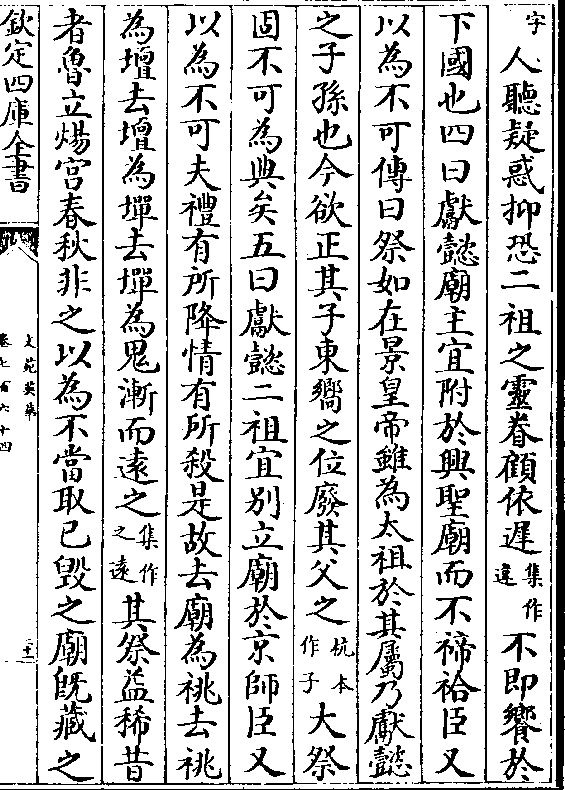 字人聽疑惑抑恐二祖之靈眷顧依遲集作違不即饗於
下國也四曰獻懿廟主宜附於興聖廟而不禘祫臣又
以為不可傳曰祭如在景皇帝雖為太祖於其屬乃獻懿
之子孫也今欲正其子東嚮之位廢其父之杭本作子大祭
固不可為典矣五曰獻懿二祖宜别立廟於京師臣又
以為不可夫禮有所降情有所殺是故去廟為祧去祧
為壇去壇為墠去墠為鬼漸而遠之集作之遠其祭益稀昔
者魯立煬宫春秋非之以為不當取已毁之廟既藏之
欽定四庫全書
文苑英華
卷七百六十四
二十一